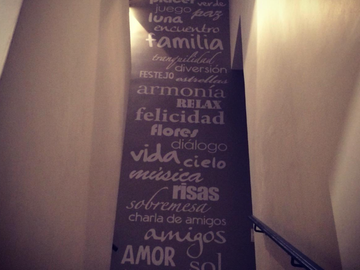 placer
juego paz
luna
encuentro
familia
tranquilidad
diversión
FESTEJO estrellas
armonía
RELAX
felicidad
flores
diálogo
vida cielo
música
risas
sobremesa
charla de amigos
amigos
AMOR sol